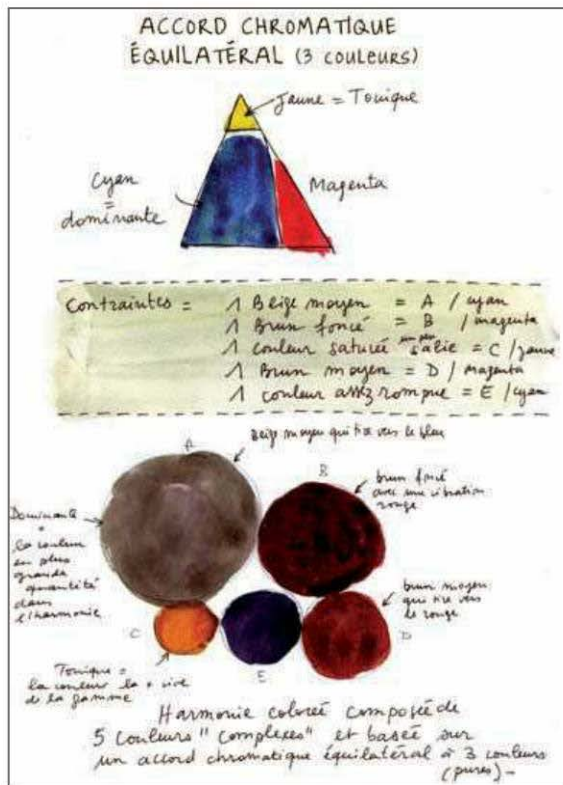 ACCORD CHROMATIQUE
ÉQUILATÉRAL (3 COULEURS)
Jaune = Tonique
Cyan
=
dominante
Magenta
Contraintes = 1 Beige moyen = A / cyan
1 Brun foncé = B / magenta
1 couleur saturée un peu salie = C / jaune
1 Brun moyen = D / magenta
1 couleur assez rompue = E / cyan
Beige moyen qui tire vers le bleu
A
B
brun foncé
avec une vibration
rouge
Dominante
=
la couleur
en plus
grande
quantité
dans
l'harmonie
brun moyen
qui tire vers
le rouge
C
E
D
Tonique =
la couleur la + vive
de la gamme
Harmonie colorée composée de
5 couleurs "complexes" et basée sur
un accord chromatique équilatéral à 3 couleurs
(pures) -